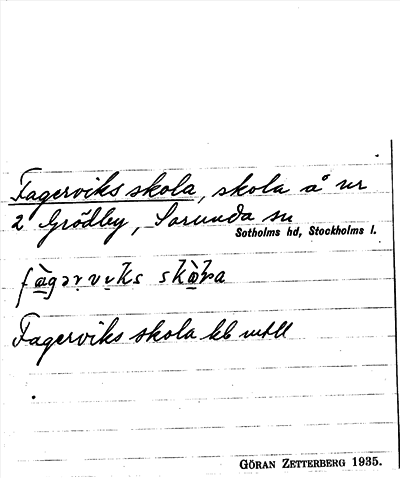 Fagerviks skola, skola å nr
2 Grödby, Sorunda sn
Sotholms hd, Stockholms l.
Fagerviks skola kb
GÖRAN ZETTERBERG 1935.